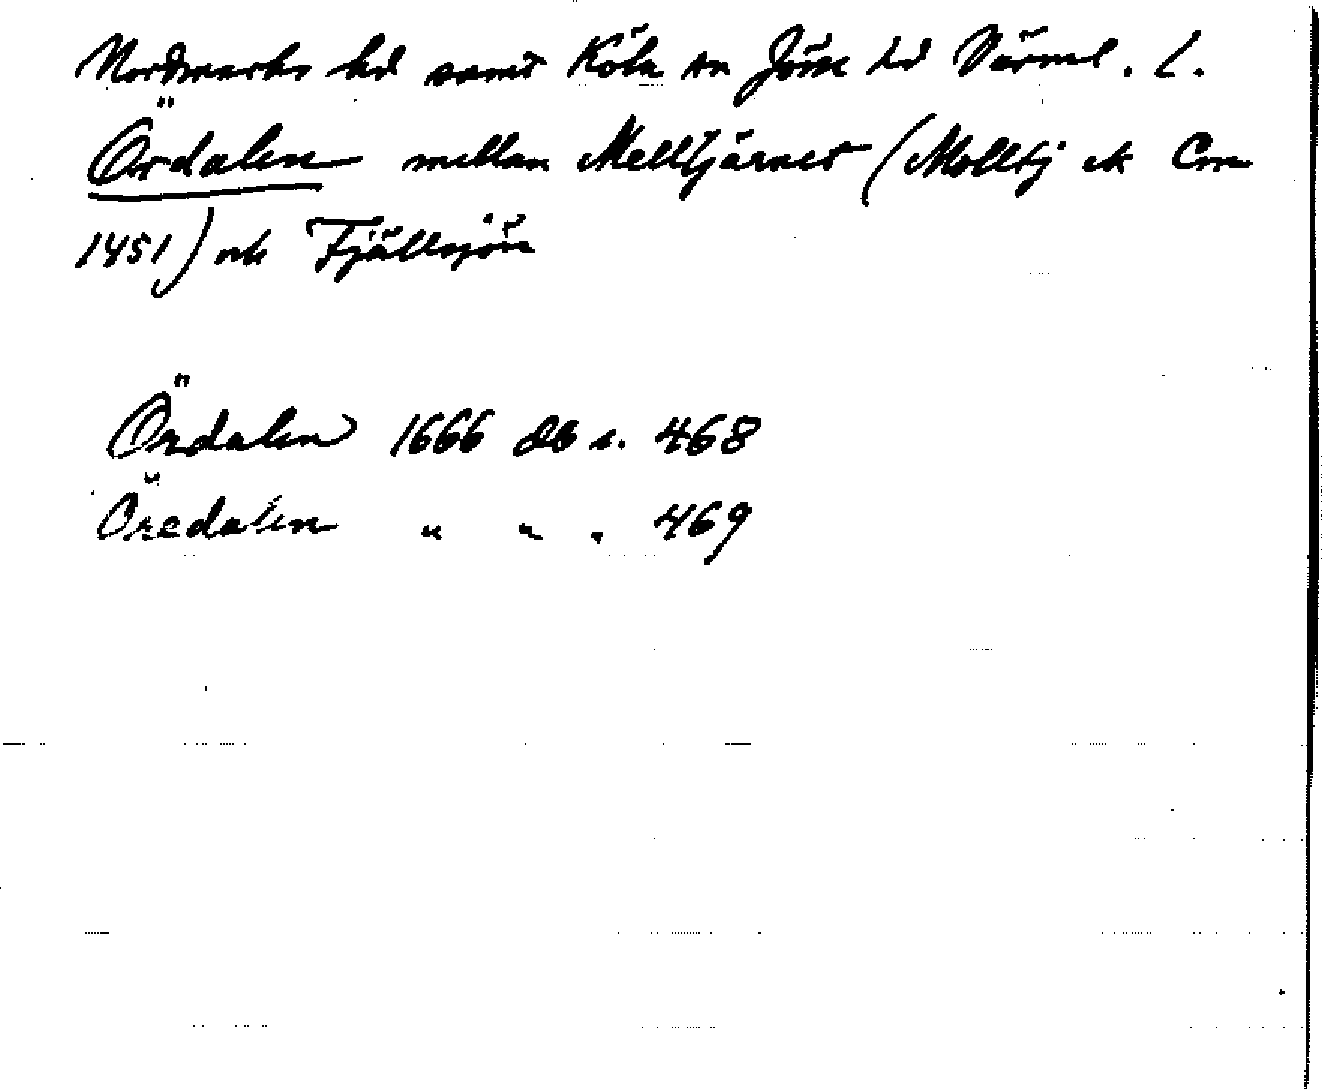 Nordmarks hd samt Köla sn Jösse hd Värml. l.
Ördalen mellan Melltjärnet (Molltj ek Con
1451) och Fjällsjön
Ördalen 1666 db s. 468
Öredalen " " . 469